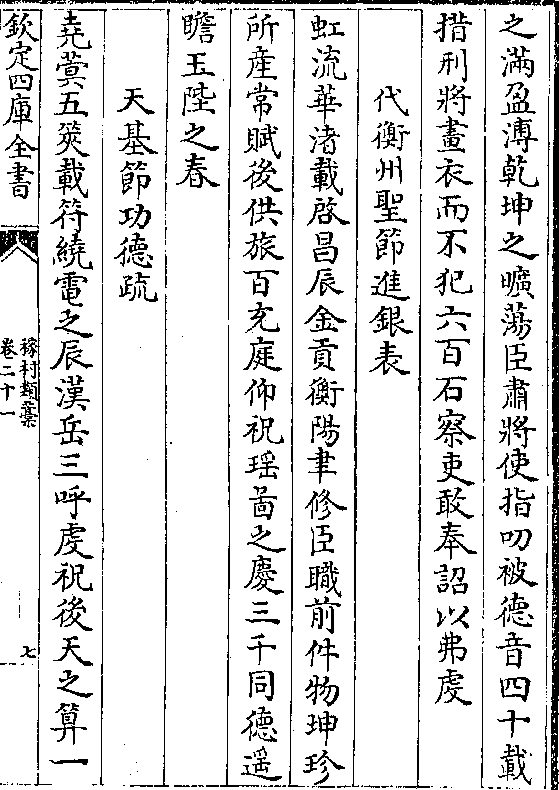 之滿盈溥乾坤之曠蕩臣肅將使指叨被德音四十載
措刑將畫衣而不犯六百石察吏敢奉詔以弗虔
代衡州聖節進銀表
虹流華渚載啓昌辰金貢衡陽聿修臣職前件物坤珍
所產常賦後供旅百充庭仰祝瑶啚之慶三千同德遥
瞻玉陛之春
天基節功德疏
堯蓂五莢載符繞電之辰漢岳三呼虔祝後天之算一
欽定四庫全書
稼村類藁
卷二十一
七